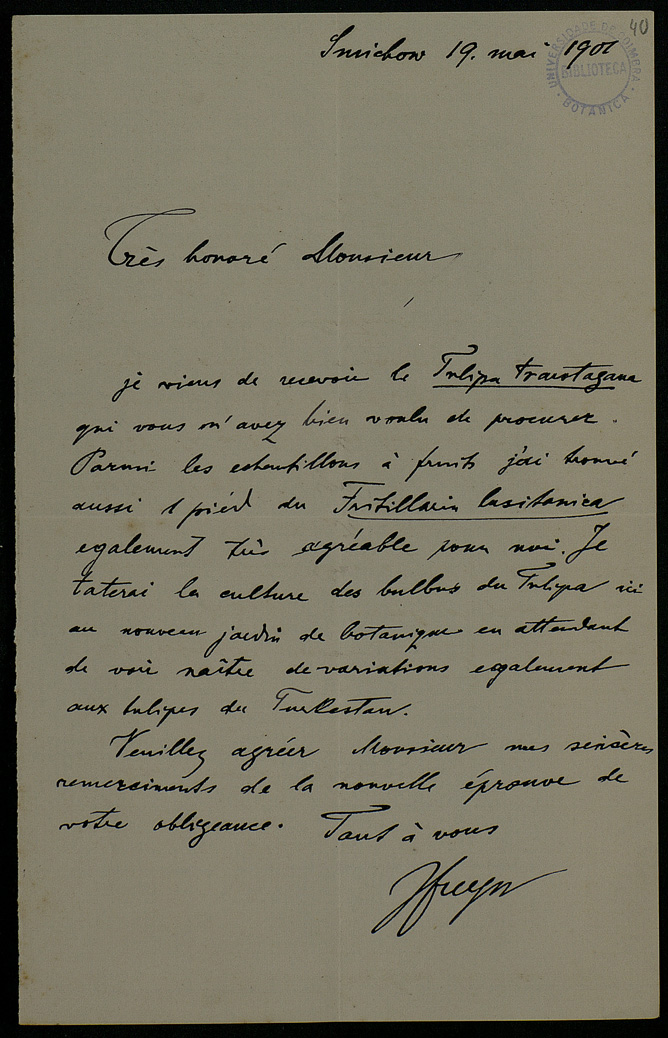 40
Smichow 19. mai 1901
UNIVERSIDADE DE COIMBRA
BIBLIOTECA
BOTANICA
Très honoré Monsieur
je viens de recevoir le Tulipa transtagana
qui vous m'avez bien voulu de procurer.
Parmi les echantillons à fruits j'ai trouvé
aussi 1 piéd du Fritillaria lusitanica
egalement très agréable pour moi. Je
taterai la culture des bulbus du Tulipa ici
au nouveau jardin de botanique en attendant
de voir naître de variations egalement
aux tulipes du Turkestan.
Veuillez agréer Monsieur mes sensères
remerciments de la nouvelle éprouve de
votre obligeance. Tout à vous
JFreyn